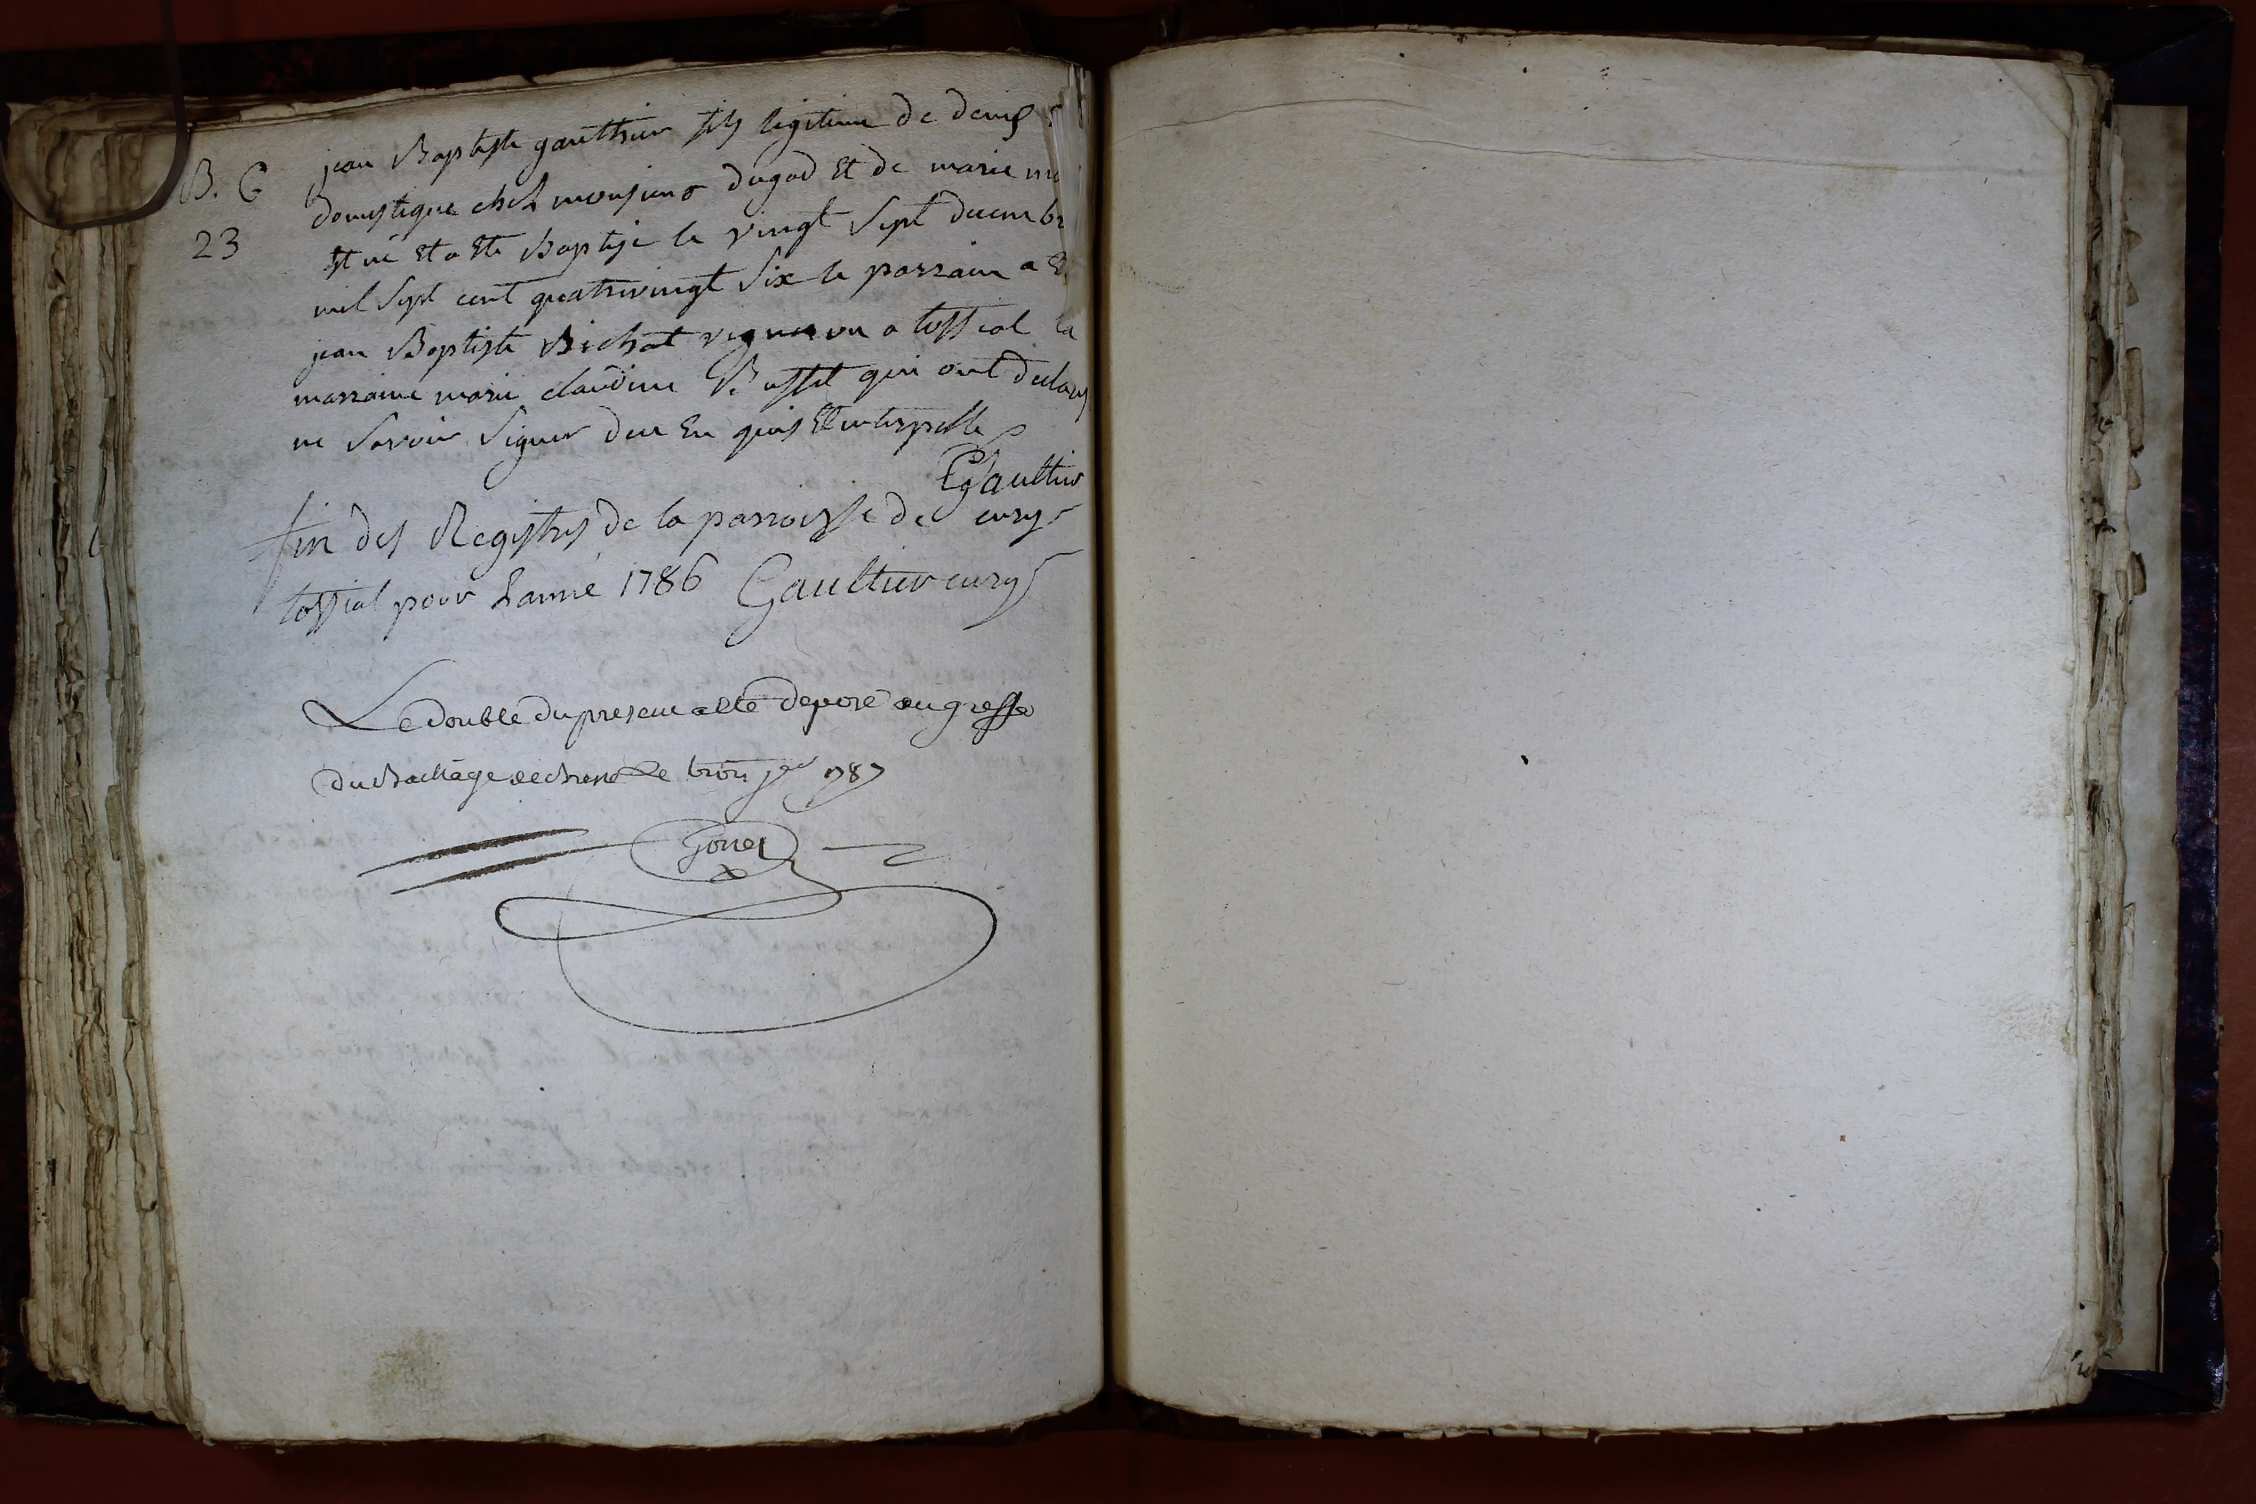 B. G
23
jean Baptiste gautthier fils legitime de denis
domestique chez monsieur dagod Et de marie
Est né Et a Ete Baptisé le vingt Sept decembr
mil Sept cent quatrevingt Six le parrain a
jean Baptiste Bichat vigneron a tossiat la
marraine marie claudine Buffet qui ont declarés
ne Savoir Signer deu En quis Et interpelle
Gaultier
fin des Registres de la parroisse de curé
tossiat pour Lanné 1786 Gaultier curé
Le double du present a été deposé au greffe
du Bailliage le trois jer 1787